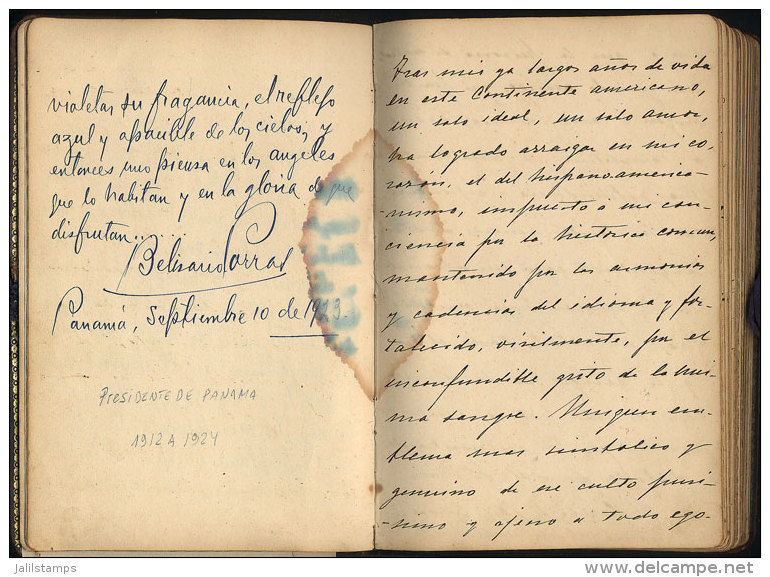 violetas su fragancia, el reflejo
azul y apacible de los cielos, y
entonces uno piensa en los angeles
que lo habitan y en la gloria de que
disfrutan......
Belisario Porras
Panamá, Septiembre 10 de 1919.
PRESIDENTE DE PANAMA
1912 A 1924
Tras mis ya largos años de vida
en este Continente americano,
un solo ideal, un solo amor,
ha logrado arraigar en mi co-
razón, el del hispanoamerica-
-nismo, impuesto á mi con-
ciencia por la historia comun,
mantenido por las armonias
y cadencias del idioma y for-
talecido, virilmente, por el
inconfundible grito de la mis-
ma sangre. Ningun em-
blema mas simbolico y
genuino de ese culto puri-
-simo y ajeno a todo ego-
jalilstamps
delcampe.net